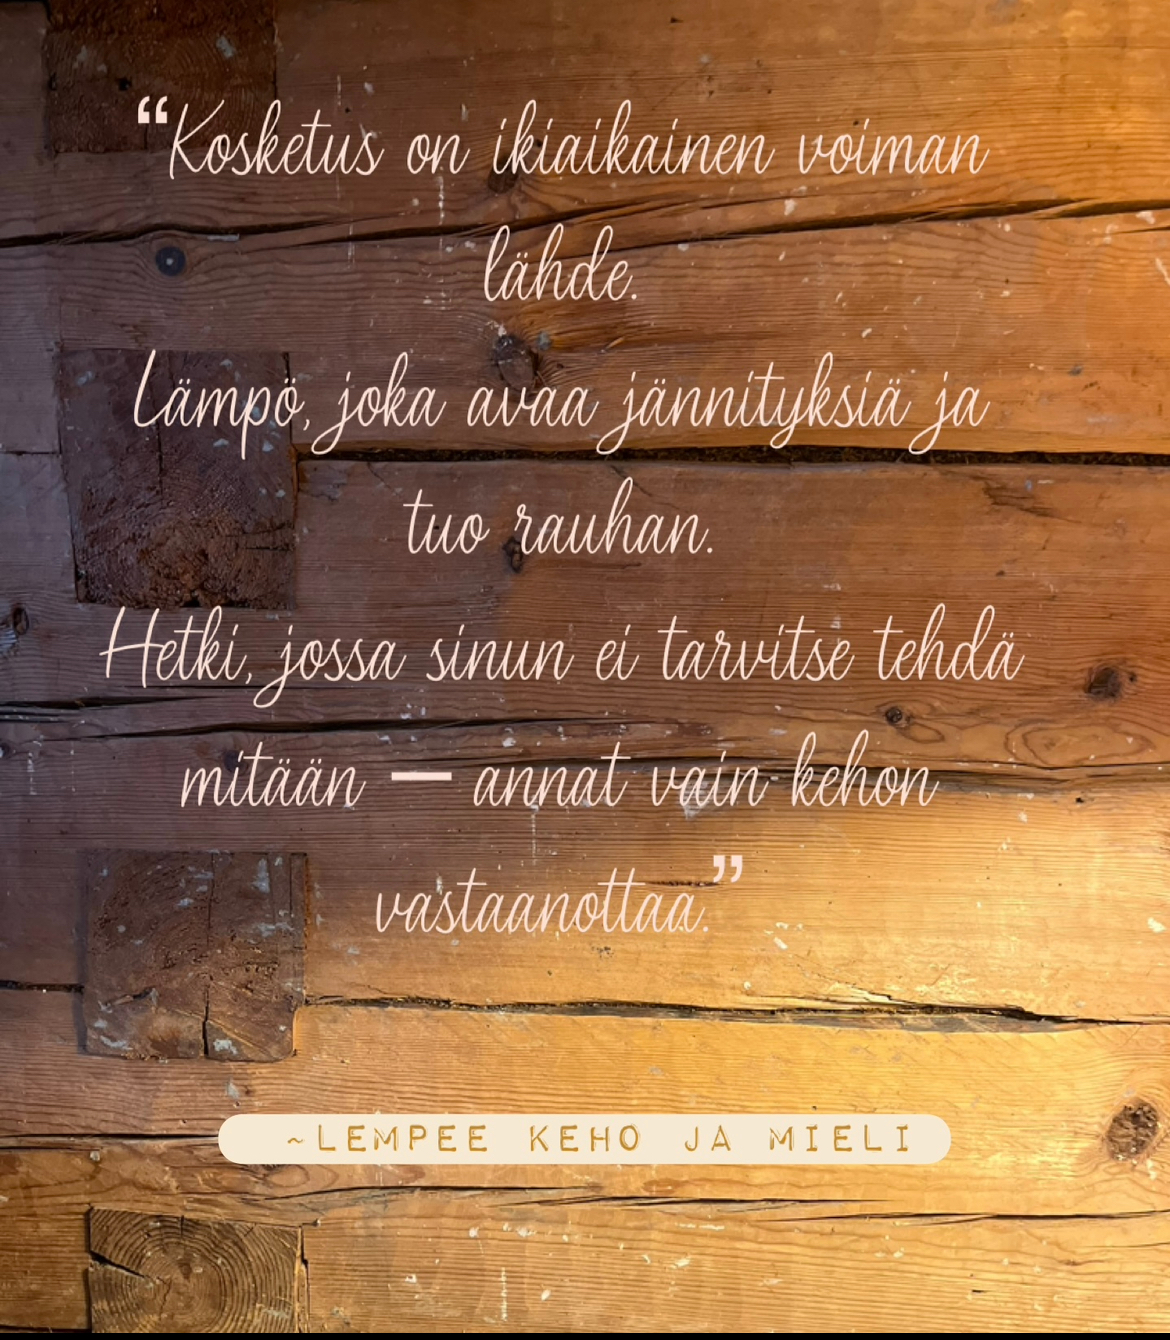 “Kosketus on ikiaikainen voiman
lähde.
Lämpö, joka avaa jännityksiä ja
tuo rauhan.
Hetki, jossa sinun ei tarvitse tehdä
mitään — annat vain kehon
vastaanottaa.”
~LEMPEE KEHO JA MIELI